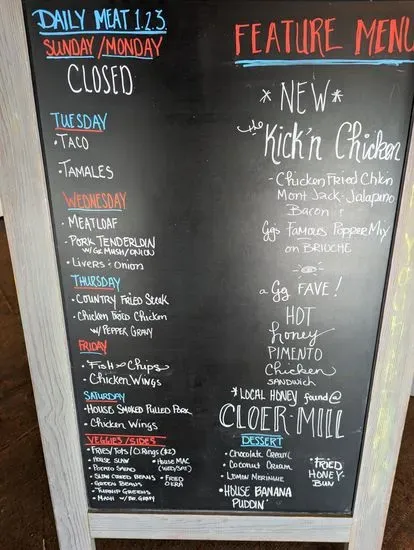 DAILY MEAT 1.2.3.
SUNDAY/MONDAY
CLOSED
TUESDAY
• TACO
• TAMALES
WEDNESDAY
• MEATLOAF
• PORK TENDERLOIN
W/GR. MUSH/ONION
• LIVERS & ONION
THURSDAY
• COUNTRY FRIED STEAK
• CHICKEN FRIED CHICKEN
W/ PEPPER GRAVY
FRIDAY
• FISH & CHIPS
• CHICKEN WINGS
SATURDAY
• HOUSE SMOKED PULLED PORK
• CHICKEN WINGS
VEGGIES/SIDES
• FRIES/TOTS/O.RINGS ($2)
• HOUSE SLAW
• POTATO SALAD
• SLOW COOKED BEANS
• GREEN BEANS
• TURNIP GREENS
• MASH W/ BR. GRAVY
• HOUSE MAC
(WED/SAT)
• FRIED
OKRA
FEATURE MENU
*NEW*
the
Kick'n Chicken
- Chicken Fried Chkn
Mont Jack - Jalapino
Bacon &
Gg's Famous Popper Mix
on BRIOCHE
a Gg FAVE!
HOT
honey
PIMENTO
Chicken
SANDWICH
*LOCAL HONEY found @
CLOER-MILL
DESSERT
• Chocolate Cream
• Coconut Cream
• LEMON MERINGUE
• HOUSE BANANA
PUDDIN'
• FRIED
HONEY-
BUN